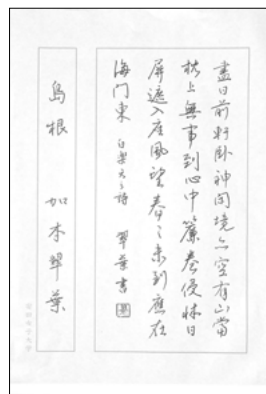 盡日前軒臥神閑境亦空有山當
枕上無事到心中簾卷侵牀日
屏遮入座風望春〻未到應在
海门東　白楽天之詩　翠葉書
島根　加本翠葉